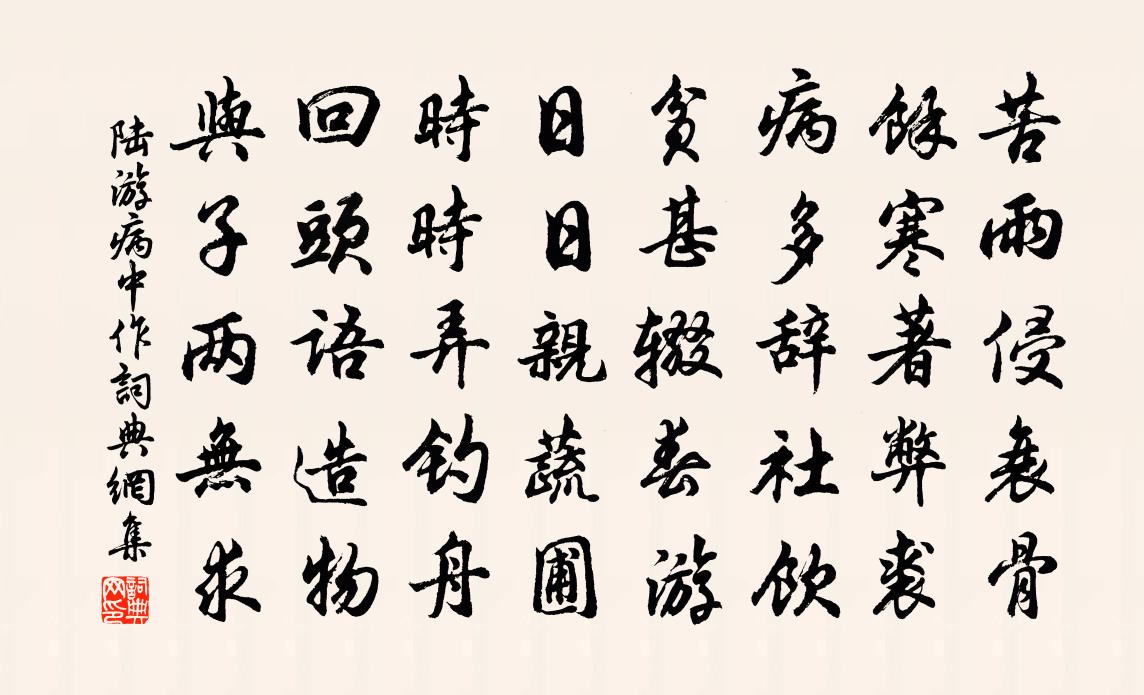 苦雨侵衰骨
餘寒著弊裘
病多辞社飲
貧甚辍春游
日日親蔬圃
時時弄釣舟
回頭語造物
與子两無求
陆游病中作詞典網集
詞典网印